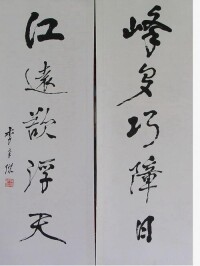 峰多巧障日
江遠欲浮天